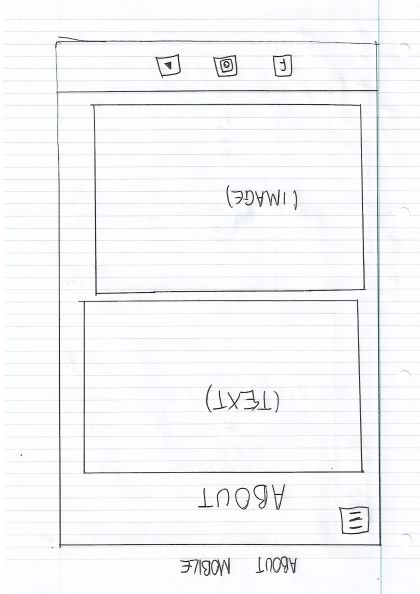 ABOUT MOBILE
ABOUT
(TEXT)
(IMAGE)
F